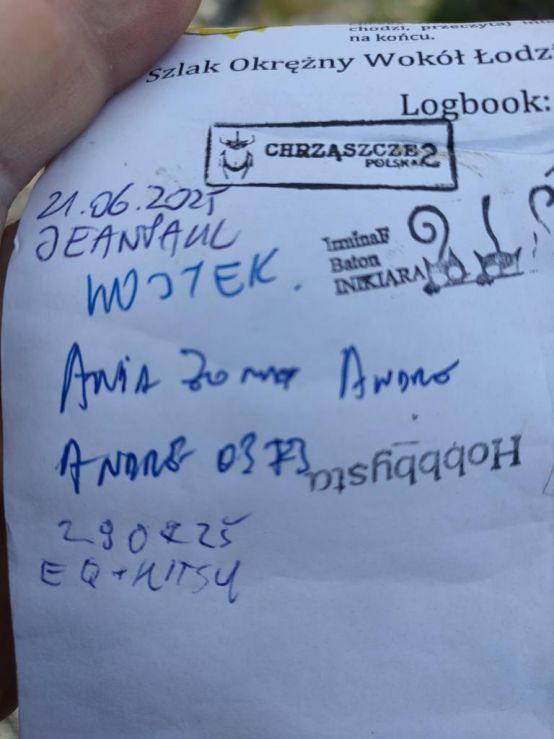 chodzi, przeczytaj
na końcu.
Szlak Okrężny Wokół Łodzi
Logbook:
CHRZĄSZCZE2
POLSKA
21.06.2025
JEANPAUL
IrminaF
Baton
INIKIARA
WOJTEK.
Ania żona Andre
ANDRE 0373
Hobbysta
EQ + KITSU